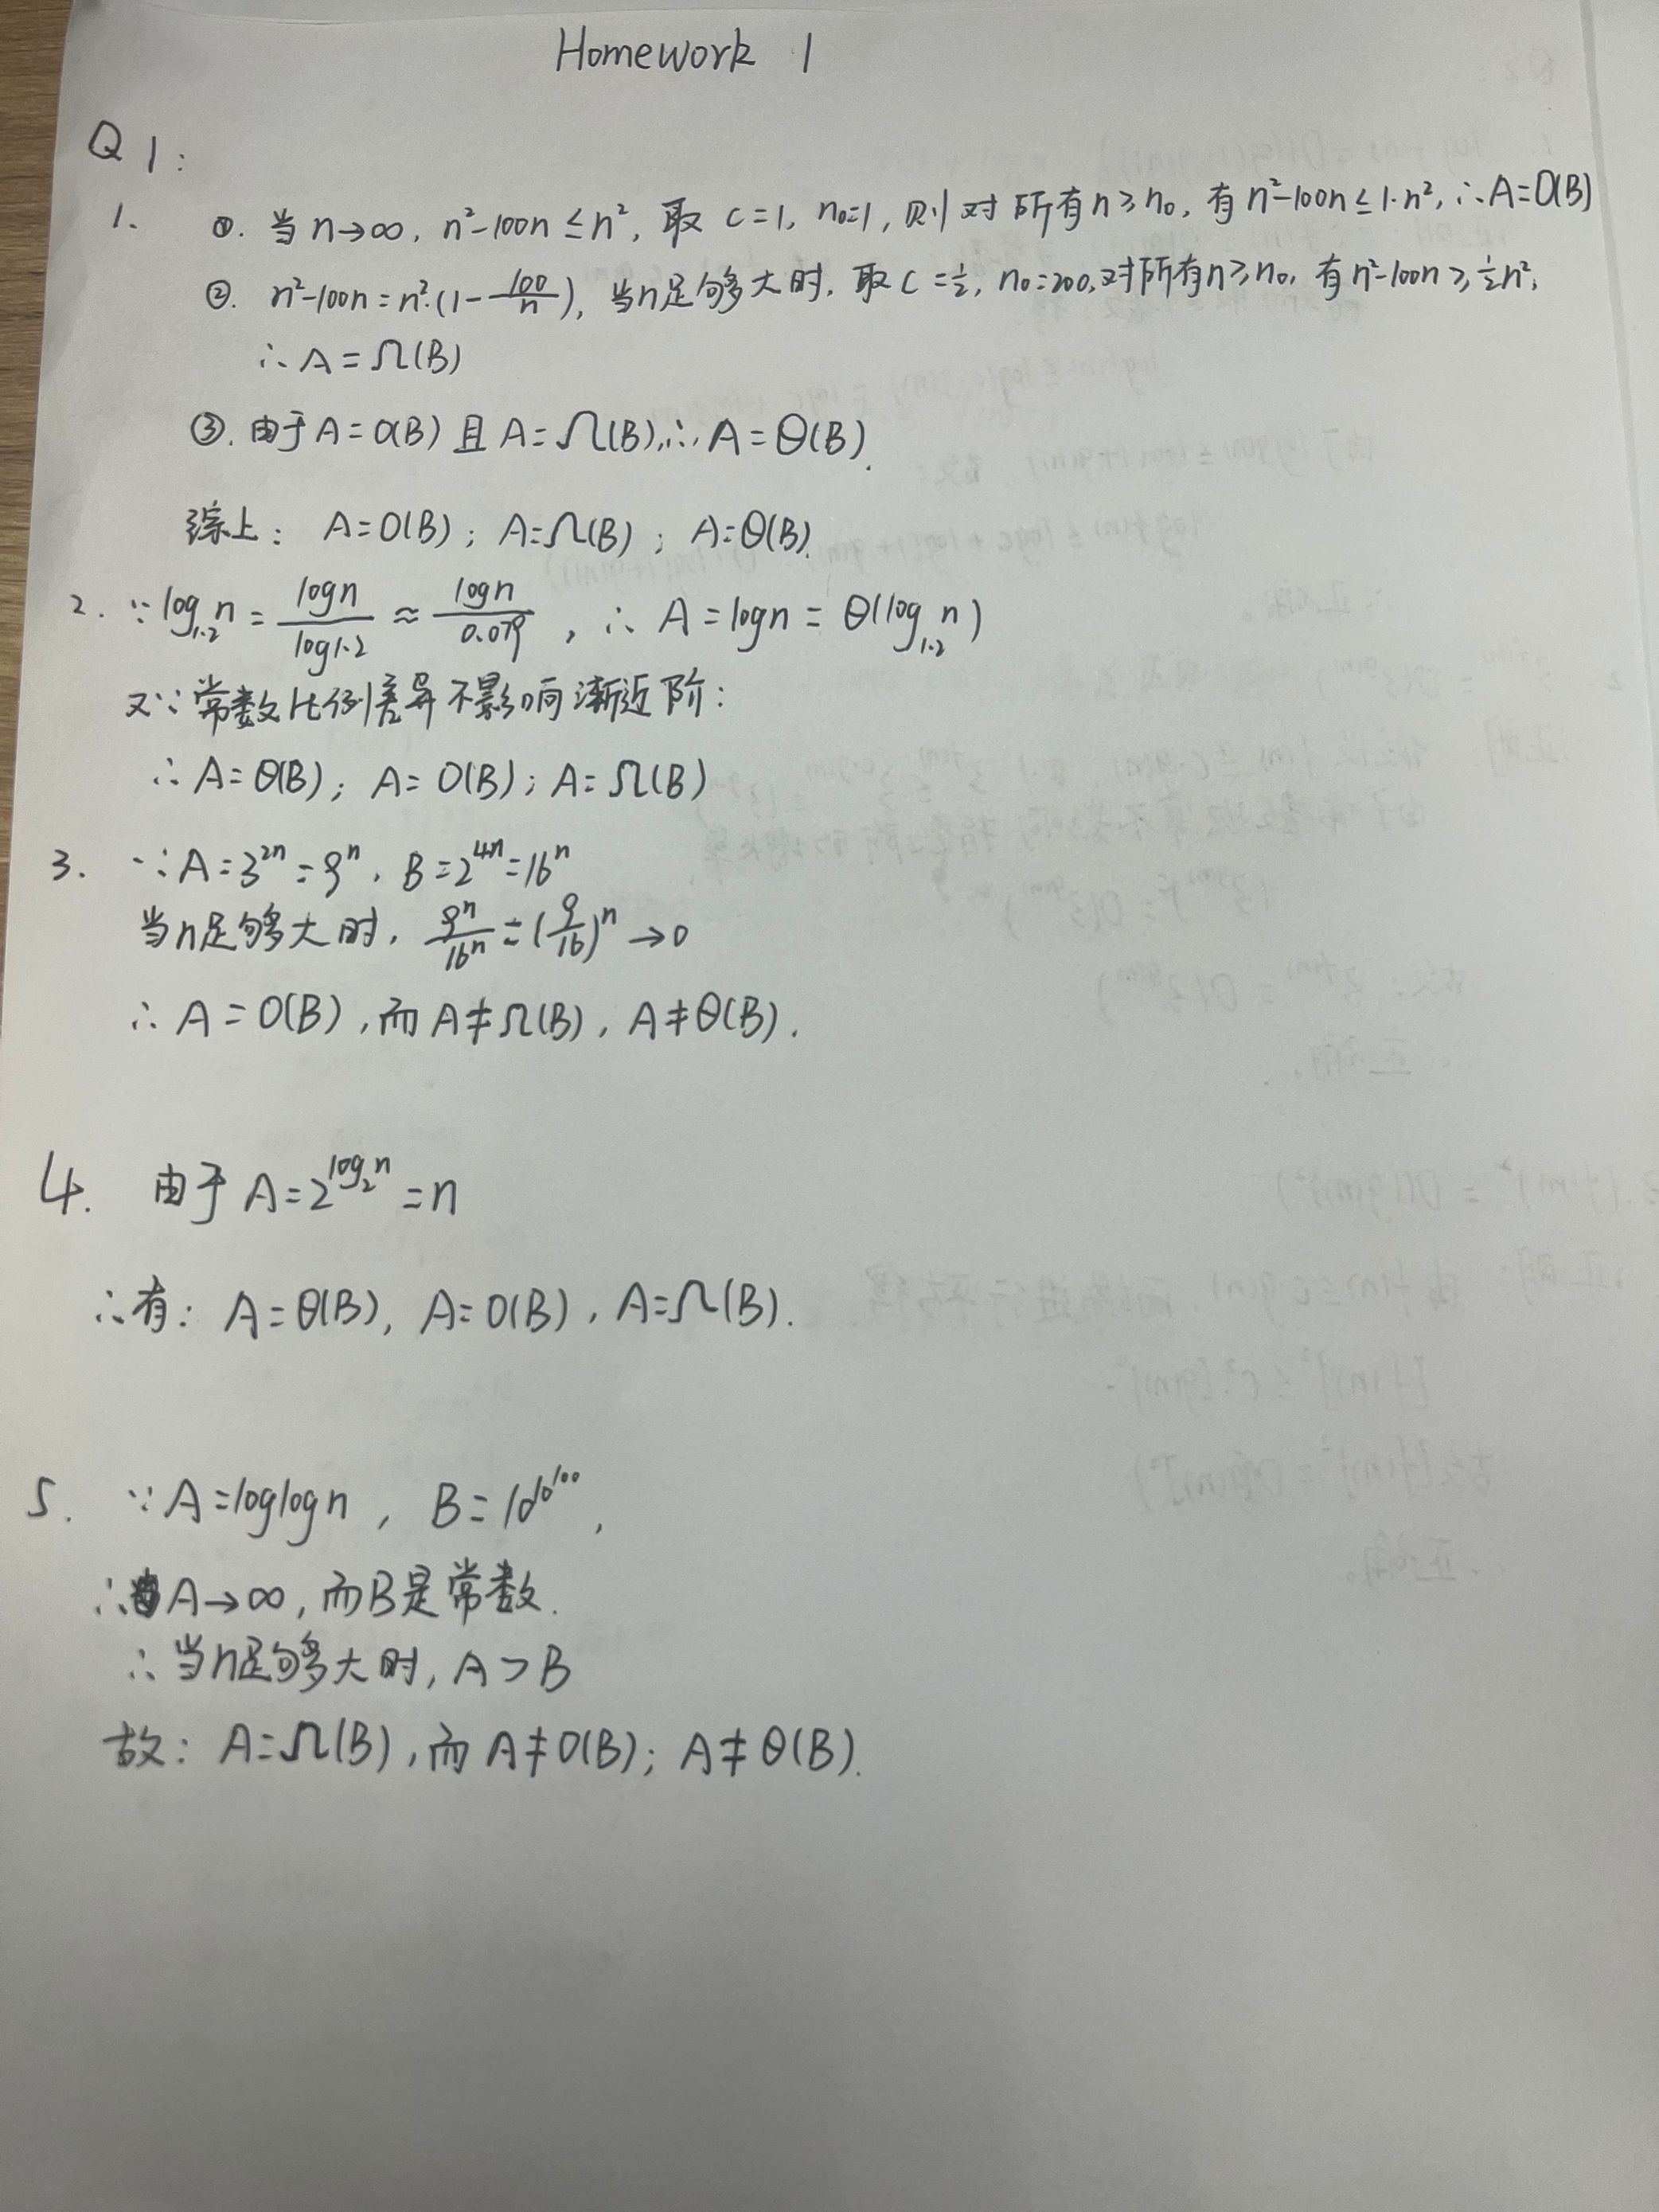 Homework 1
Q1:
1. ①. 当n→∞, n²-100n≤n², 取 c=1, n₀=1, 则对所有n≥n₀, 有n²-100n≤1·n², ∴A=O(B)
②. n²-100n=n²·(1-100/n), 当n足够大时, 取c=½, n₀=200, 对所有n≥n₀, 有n²-100n≥½n²,
∴A=Ω(B)
③. 由于A=O(B)且A=Ω(B), ∴A=Θ(B).
综上: A=O(B); A=Ω(B); A=Θ(B).
2. ∵log₁.₂n = logn/log1.2 ≈ logn/0.079, ∴ A=logn=Θ(log₁.₂n)
又∵常数比例差异不影响渐近阶:
∴A=Θ(B); A=O(B); A=Ω(B)
3. ∵A=3²ⁿ=9ⁿ, B=2⁴ⁿ=16ⁿ
当n足够大时, 9ⁿ/16ⁿ=(9/16)ⁿ→0
∴A=O(B), 而A≠Ω(B), A≠Θ(B).
4. 由于A=2^log₂n=n
∴有: A=Θ(B), A=O(B), A=Ω(B).
5. ∵A=loglogn, B=10^10^100,
∴A→∞, 而B是常数.
∴当n足够大时, A>B
故: A=Ω(B), 而A≠O(B); A≠Θ(B).